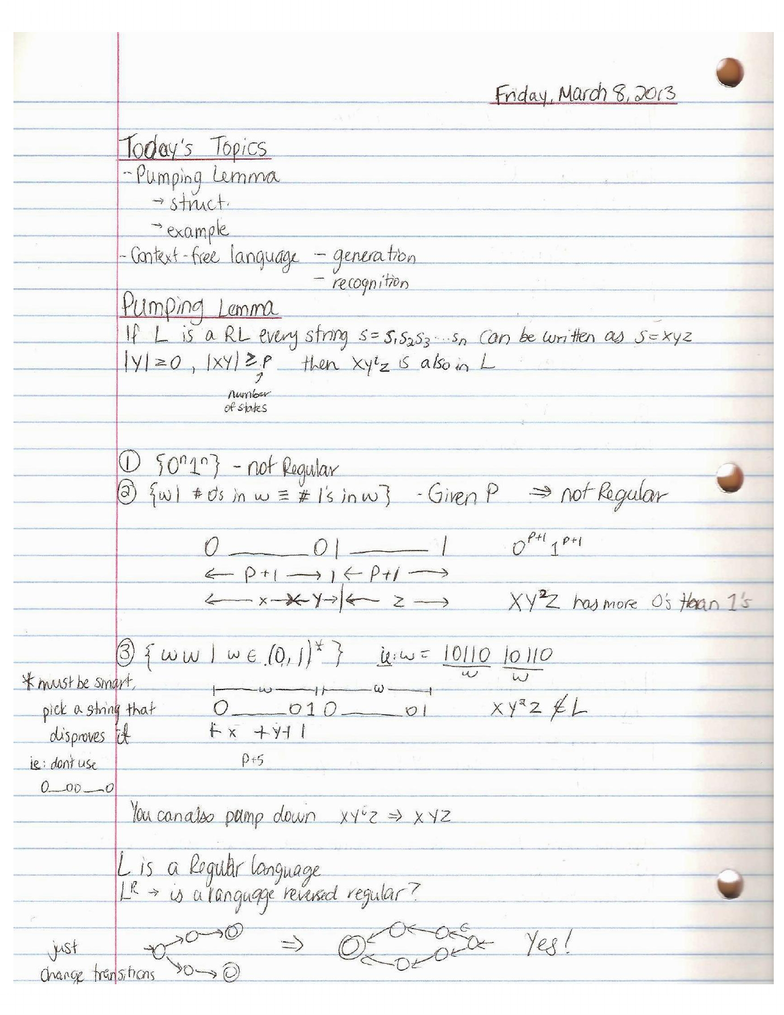 Friday, March 8, 2013
Today's Topics
- Pumping Lemma
→ struct.
→ example
- Context-free language - generation
- recognition
Pumping Lemma
If L is a RL every string s = s₁s₂s₃...sₙ can be written as s=xyz
|y| ≥ 0, |xy| ≥ p then xyⁱz is also in L
number
of states
① {0ⁿ1ⁿ} - not Regular
② {w| # 0s in w ≡ # 1's in w} - Given P ⇒ not Regular
0 ____ 01 ____ 1 0ᴾ⁺¹ 1ᴾ⁺¹
← P+1 → | ← P+1 →
← x → ← y → | ← z → XY²Z has more 0's than 1's
③ {ww | w ∈ (0,1)*} ie: w = 10110 10110
w w
* must be smart,
pick a string that
disproves it
ie: don't use
0_00_0
w w
0____010____01 XY²Z ∉ L
x y
P+5
You can also pump down XY⁰Z ⇒ XYZ
L is a Regular language
Lᴿ → is a language reversed regular?
just
change transitions
⇒ Yes!